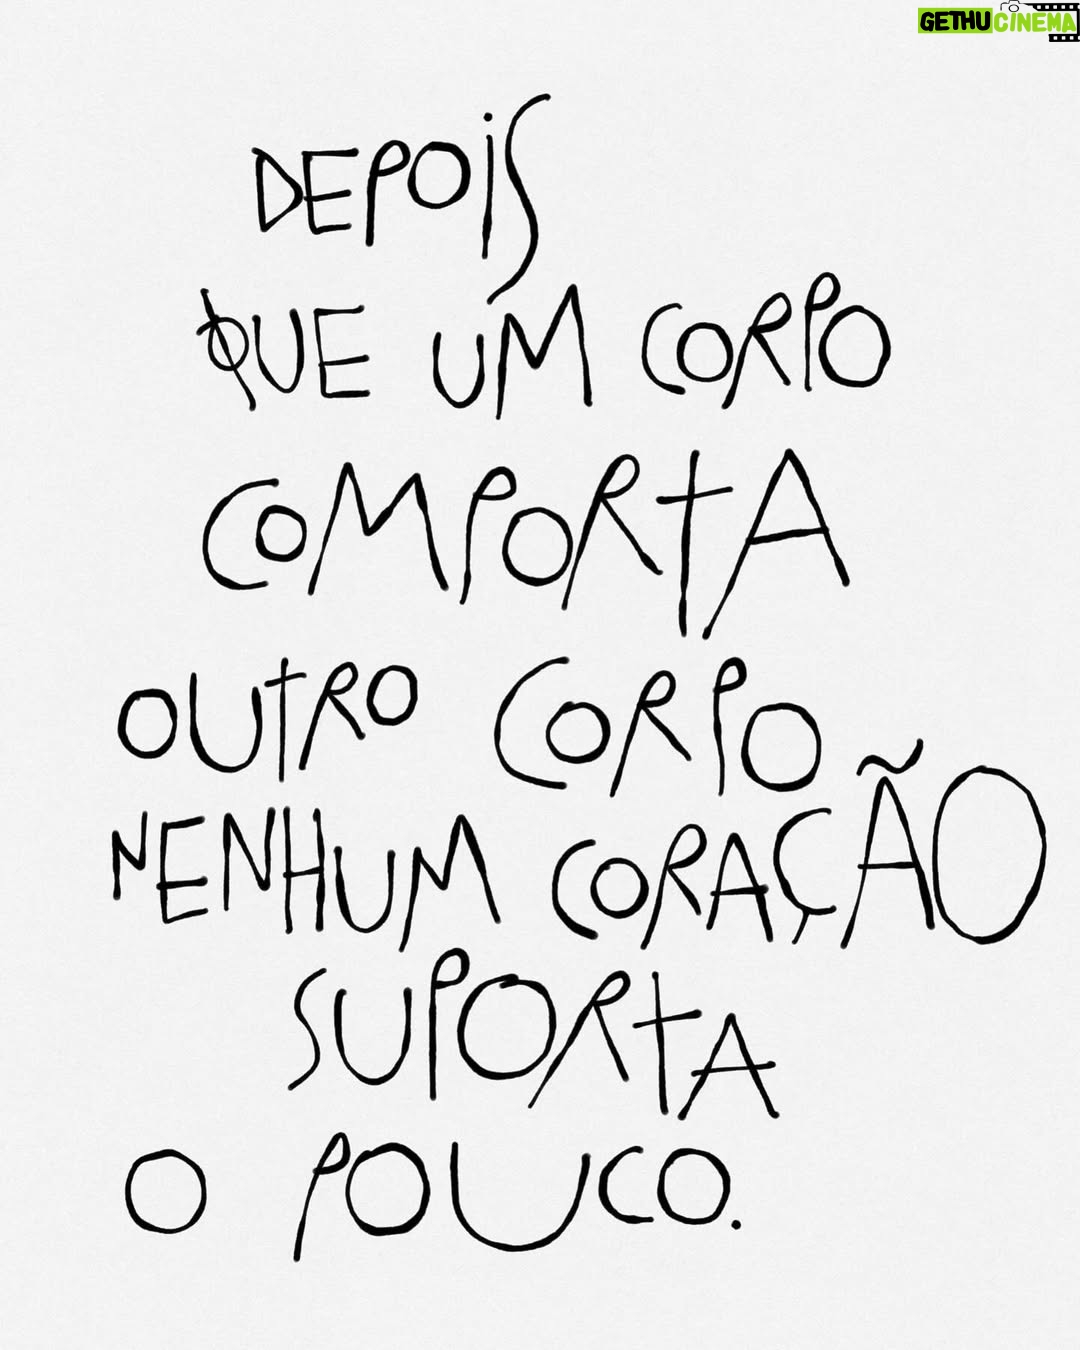 GETHUCINEMA
DEPOiS
QUE UM CORPO
COMPORTA
OUTRO CORPO
NENHUM CORAÇÃO
SUPORTA
O POUCO.